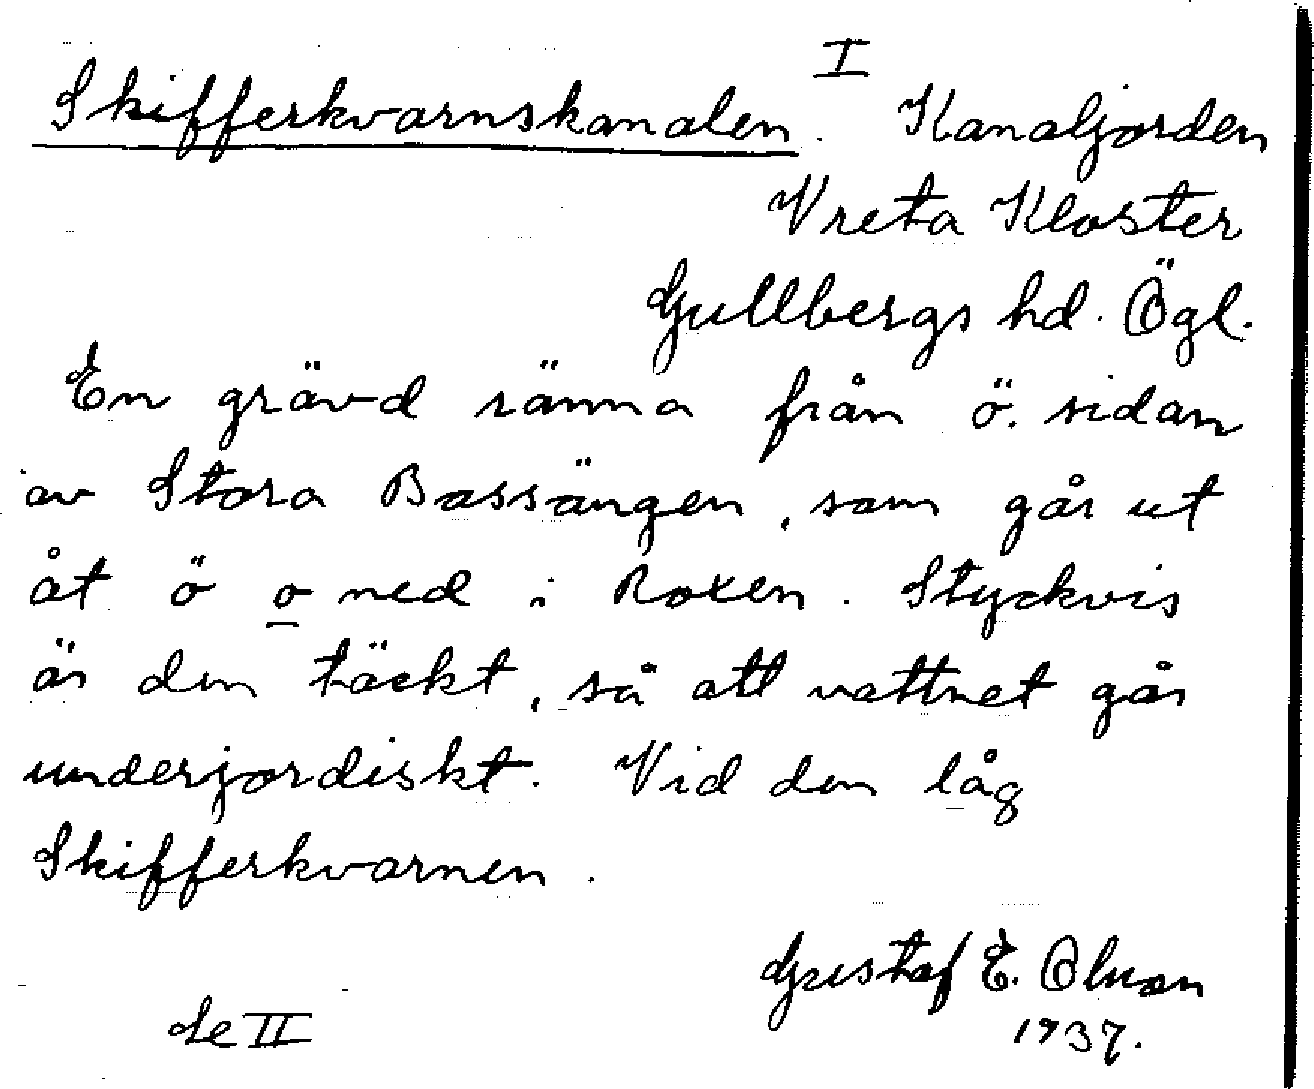 I
Skifferkvarnskanalen. Kanaljorden
Vreta Kloster
Gullbergs hd. Ögl.
En grävd ränna från ö. sidan
av Stora Bassängen, som går ut
åt ö o ned i Roxen. Styckvis
är den täckt, så att vattnet går
underjordiskt. Vid den låg
Skifferkvarnen.
Gustaf E. Olsson
1937.
se II